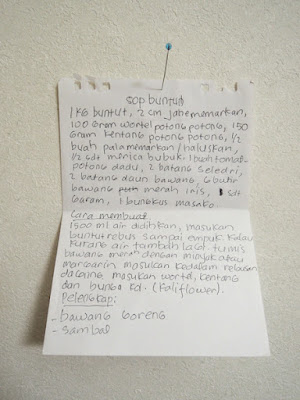 sop buntut
1 KG buntut, 2 cm jahe memarkan,
100 Gram wortel potong potong, 150
Gram kentang potong potong, 1/2
buah pala memarkan / haluskan,
1/2 sdt merica bubuk, 1 buah tomat
potong dadu, 2 batang seledri,
2 batang daun bawang, 6 buah
bawang merah iris, 1 sdt
Garam, 1 bungkus masako.
Cara membuat
1500 ml air didihkan, masukan
buntut rebus sampai empuk. Kalau
kurang air tambah lagi. tumis
bawang merah dengan minyak atau
margarin masukan kedalam rebusan
daging masukan wortel, kentang
dan bunga Kol. (Kaliflower).
Pelengkap:
- bawang Goreng
- sambal